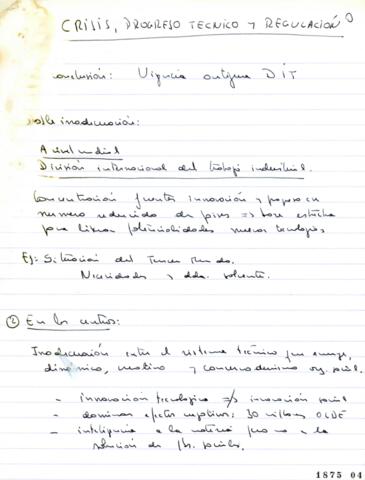 CRISIS, PROGRESO TECNICO Y REGULACIÓN
conclusión: Vigencia antigua DIT
doble inadecuación:
A nivel mundial
División internacional del trabajo industrial.
Concentración fuentes innovación y progreso en
numero reducido de países => base estrecha
para liberar potencialidades nuevas tecnologías
Ej: Situación del Tercer Mundo.
Necesidades y dda. solvente.
② En los centros:
Inadecuación entre el sistema técnico que emerge,
dinámico, creativo y conservadurismo org. social.
- innovación tecnológica => innovación social
- dominan efectos negativos: 30 millones OCDE
- inteligencia a la materia pero no a la
solución de pb. sociales.
1875 04